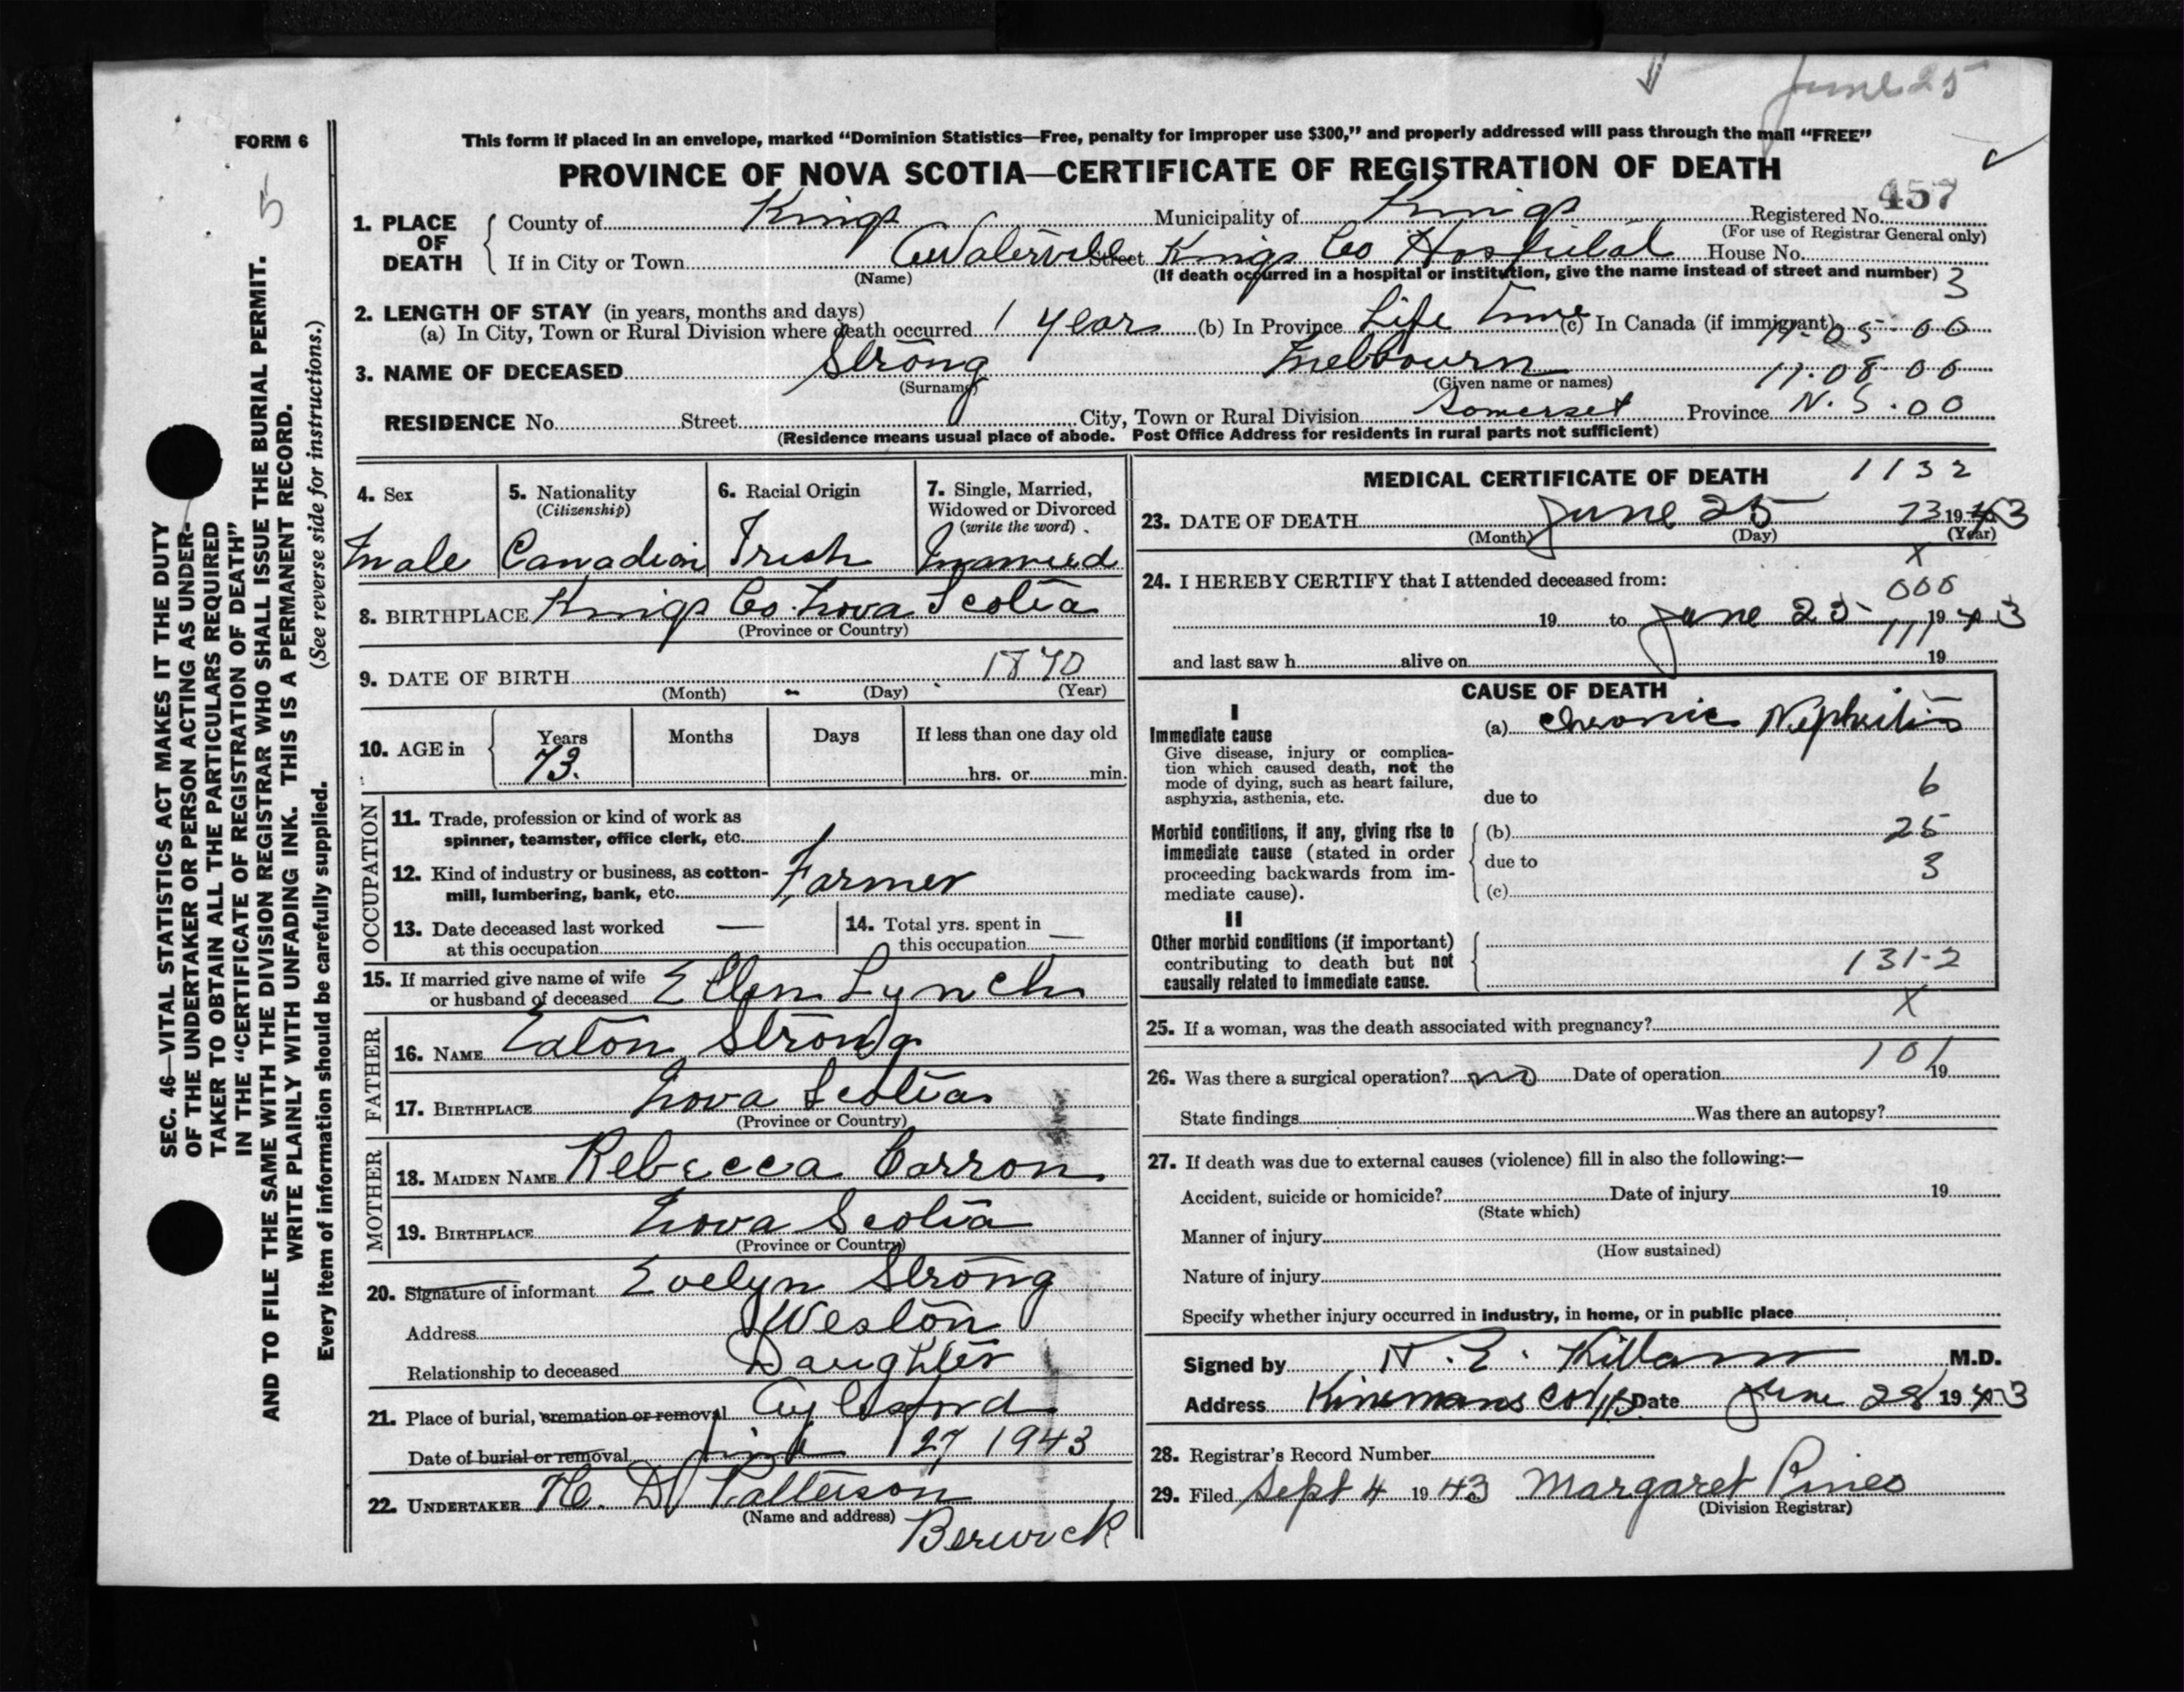 June 25
FORM 6
5
This form if placed in an envelope, marked “Dominion Statistics—Free, penalty for improper use $300,” and properly addressed will pass through the mail “FREE”
PROVINCE OF NOVA SCOTIA—CERTIFICATE OF REGISTRATION OF DEATH
457
1. PLACE OF DEATH County of Kings Municipality of Kings Registered No.
(For use of Registrar General only)
If in City or Town Waterville Street Kings Co Hospital House No.
(Name) (If death occurred in a hospital or institution, give the name instead of street and number) 3
2. LENGTH OF STAY (in years, months and days)
(a) In City, Town or Rural Division where death occurred 1 year (b) In Province Life Time (c) In Canada (if immigrant) 17-05-00
3. NAME OF DECEASED Strong Melbourn 17-08-00
(Surname) (Given name or names)
RESIDENCE No. Street City, Town or Rural Division Somerset Province N.S. 00
(Residence means usual place of abode. Post Office Address for residents in rural parts not sufficient)
4. Sex 5. Nationality (Citizenship) 6. Racial Origin 7. Single, Married, Widowed or Divorced (write the word)
Male Canadian Irish Married
8. BIRTHPLACE Kings Co. Nova Scotia
(Province or Country)
9. DATE OF BIRTH 1870
(Month) (Day) (Year)
10. AGE in Years Months Days If less than one day old
73. hrs. or min.
OCCUPATION
11. Trade, profession or kind of work as
spinner, teamster, office clerk, etc.
12. Kind of industry or business, as cotton-
mill, lumbering, bank, etc. Farmer
13. Date deceased last worked at this occupation — 14. Total yrs. spent in this occupation —
15. If married give name of wife
or husband of deceased Ellen Lynch
FATHER
16. NAME Eaton Strong
17. BIRTHPLACE Nova Scotia
(Province or Country)
MOTHER
18. MAIDEN NAME Rebecca Carron
19. BIRTHPLACE Nova Scotia
(Province or Country)
20. Signature of informant Evelyn Strong
Address Weston
Relationship to deceased Daughter
21. Place of burial, cremation or removal Aylesford
Date of burial or removal June 27 1943
22. UNDERTAKER H. D. Patterson
(Name and address) Berwick
MEDICAL CERTIFICATE OF DEATH 1132
23. DATE OF DEATH June 25 73 1943
(Month) (Day) (Year)
X
24. I HEREBY CERTIFY that I attended deceased from:
000
19 to June 25 1943
111
and last saw h alive on 19
CAUSE OF DEATH
I
Immediate cause
Give disease, injury or complica-
tion which caused death, not the
mode of dying, such as heart failure,
asphyxia, asthenia, etc.
(a) Chronic Nephritis
6
due to
Morbid conditions, if any, giving rise to
immediate cause (stated in order
proceeding backwards from im-
mediate cause).
(b) 25
due to 3
(c)
II
Other morbid conditions (if important)
contributing to death but not
causally related to immediate cause.
131-2
X
25. If a woman, was the death associated with pregnancy?
101
26. Was there a surgical operation? no Date of operation 19
State findings Was there an autopsy?
27. If death was due to external causes (violence) fill in also the following:—
Accident, suicide or homicide? Date of injury 19
(State which)
Manner of injury
(How sustained)
Nature of injury
Specify whether injury occurred in industry, in home, or in public place
Signed by N. E. Killam M.D.
Address Kinsmans Date June 28 1943
28. Registrar’s Record Number
29. Filed Sept 4 1943 Margaret Pineo
(Division Registrar)
SEC. 46—VITAL STATISTICS ACT MAKES IT THE DUTY
OF THE UNDERTAKER OR PERSON ACTING AS UNDER-
TAKER TO OBTAIN ALL THE PARTICULARS REQUIRED
IN THE “CERTIFICATE OF REGISTRATION OF DEATH”
AND TO FILE THE SAME WITH THE DIVISION REGISTRAR WHO SHALL ISSUE THE BURIAL PERMIT.
WRITE PLAINLY WITH UNFADING INK. THIS IS A PERMANENT RECORD.
Every item of information should be carefully supplied. (See reverse side for instructions.)